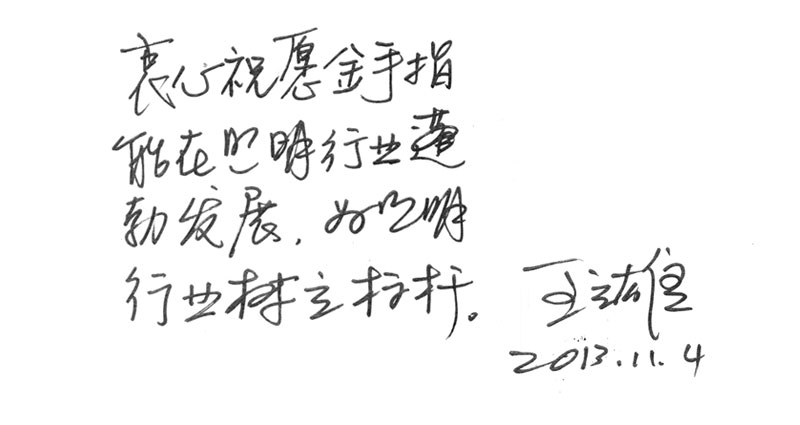 衷心祝愿金手指
能在照明行业蓬
勃发展，为照明
行业树立标杆。
王立雄
2013.11.4